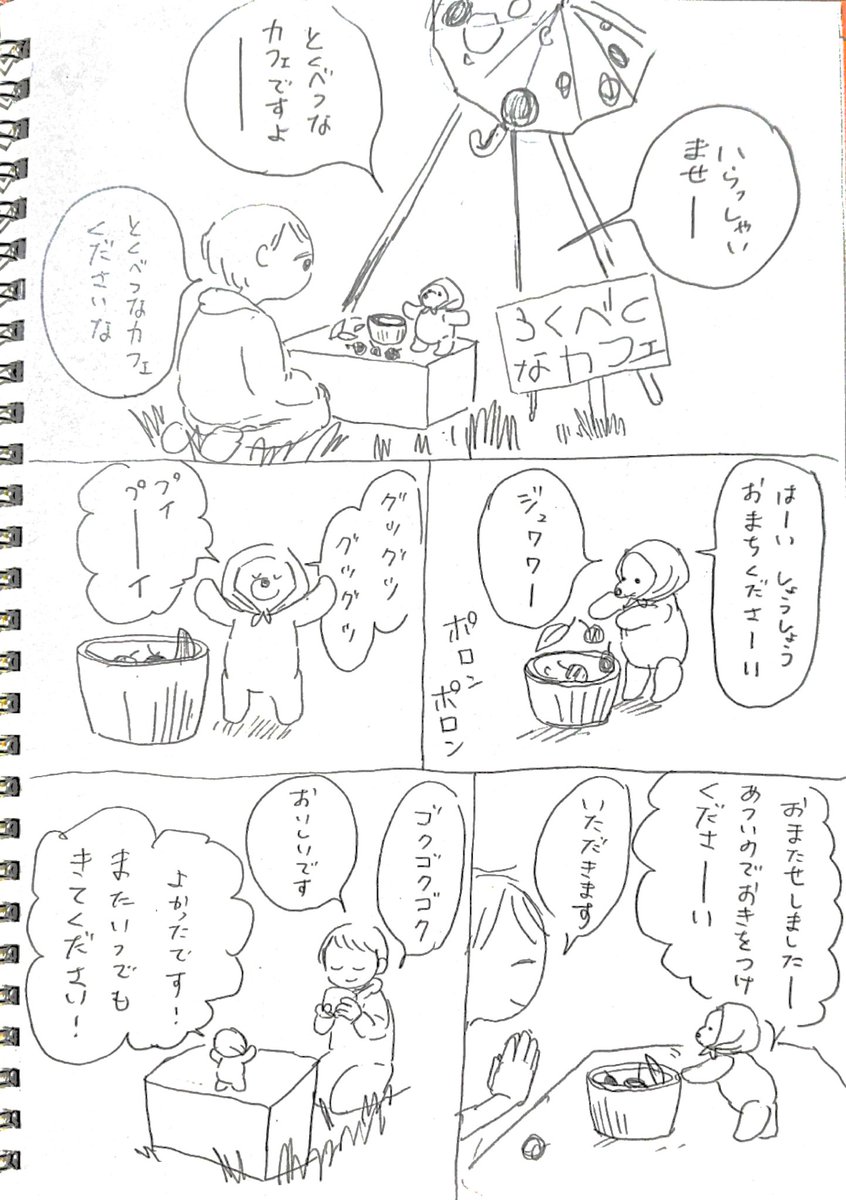 いらっしゃい
ませー
とくべつな
カフェですよ
ー
とくべつ
なカフェ
とくべつなカフェ
くださいな
はーい しょうしょう
おまちくださーい
ジュワワー
ポロン
ポロン
グツグツ
グツグツ
プイ
プーイ
おまたせしましたー
あついのでおきをつけ
くださーい
いただきます
ゴクゴクゴク
おいしいです
よかったです！
またいつでも
きてください！